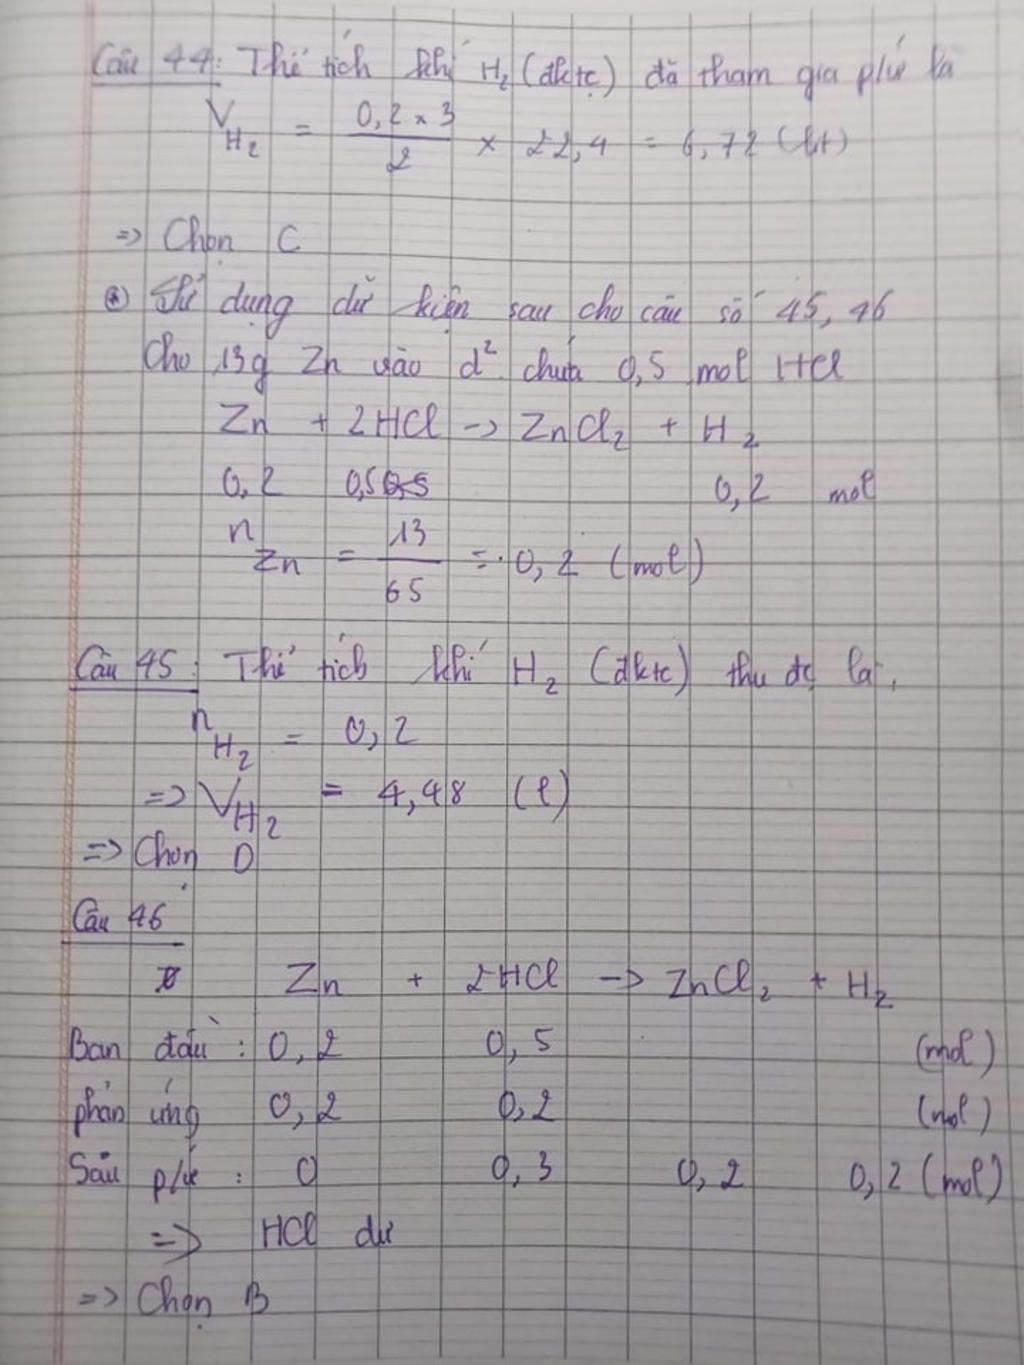 Câu 44: Thể tích khí H₂ (đktc) đã tham gia p/ứ là
V_H₂ = (0,2 × 3)/2 × 22,4 = 6,72 (lít)
=> Chọn C
⊛ Sử dụng dữ kiện sau cho câu số 45, 46
Cho 13g Zn vào d² chứa 0,5 mol HCl
Zn + 2HCl -> ZnCl₂ + H₂
0,2 0,5 0,2 mol
n_Zn = 13/65 = 0,2 (mol)
Câu 45: Thể tích khí H₂ (đktc) thu đc là.
n_H₂ = 0,2
=> V_H₂ = 4,48 (l)
=> Chọn D
Câu 46
Zn + 2HCl -> ZnCl₂ + H₂
Ban đầu: 0,2 0,5 (mol)
phản ứng 0,2 0,2 (mol)
Sau p/ứ: 0 0,3 0,2 0,2 (mol)
=> HCl dư
=> Chọn B